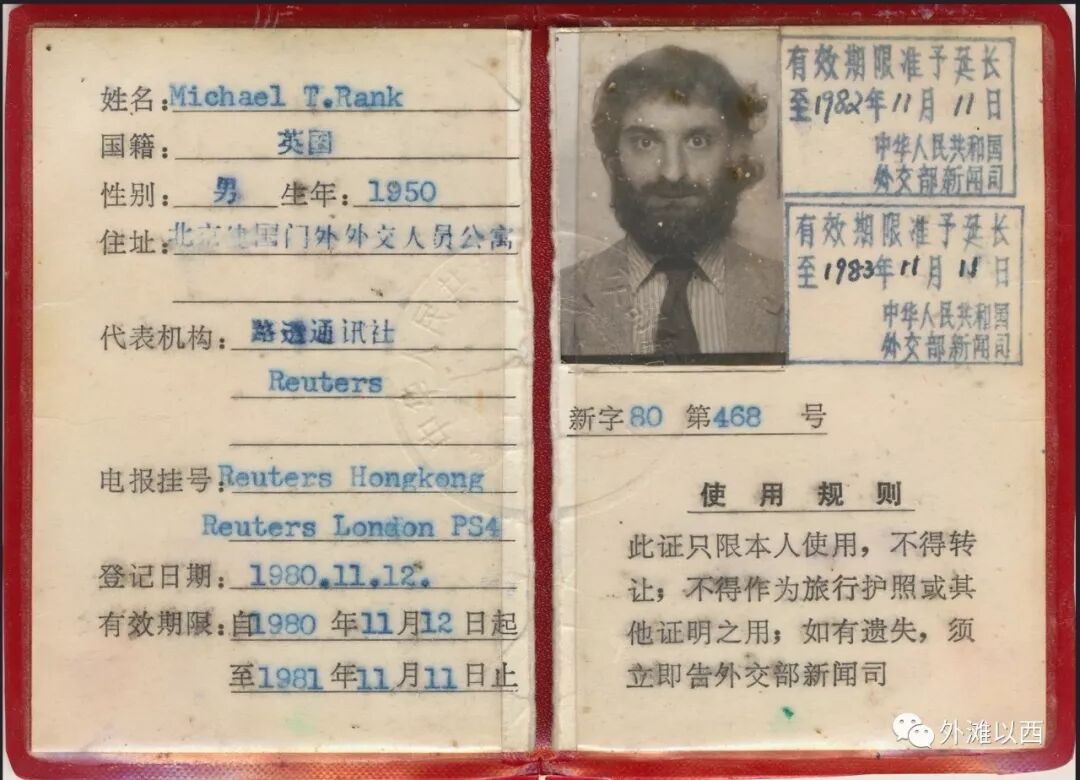 姓名:Michael T.Rank
国籍: 英国
性别: 男 生年: 1950
住址:北京建国门外外交人员公寓
代表机构: 路透通讯社
Reuters
电报挂号:Reuters Hongkong
Reuters London PS4
登记日期: 1980.11.12.
有效期限:自1980 年11月12日起
至1981 年11月11日止
有效期限准予延长
至1982年11月11日
中华人民共和国
外交部新闻司
有效期限准予延长
至1983年11月11日
中华人民共和国
外交部新闻司
新字80 第468 号
使用规则
此证只限本人使用，不得转
让；不得作为旅行护照或其
他证明之用；如有遗失，须
立即告外交部新闻司
外滩以西